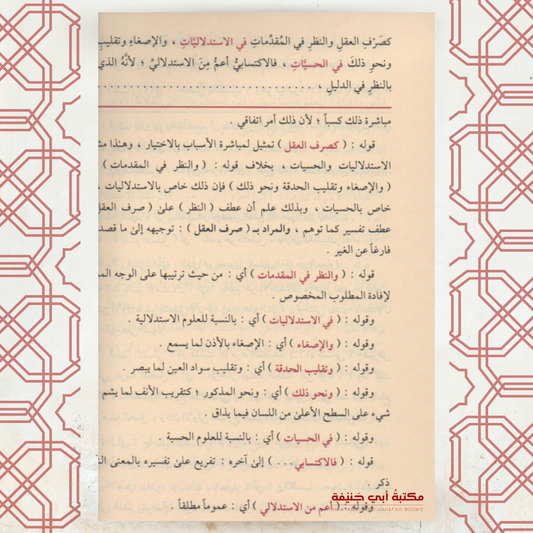 كصَرْفِ العقلِ والنظرِ في المُقدِّماتِ في الاستدلاليَّاتِ ، والإصغاءِ وتقليبِ
ونحوِ ذلكَ في الحسيَّاتِ ، فالاكتسابيُّ أعمُّ مِنَ الاستدلاليِّ ؛ لأنَّهُ الذي
بالنظرِ في الدليلِ ، . . . . . . . . . . . . . . . . . . . . . . . . . . . . . .
مباشرة ذلك كسباً ؛ لأن ذلك أمر اتفاقي .
قوله : ( كصرف العقل ) تمثيل لمباشرة الأسباب بالاختيار ، وهذا
الاستدلاليات والحسيات ، بخلاف قوله : ( والنظر في المقدمات )
( والإصغاء وتقليب الحدقة ونحو ذلك ) فإن ذلك خاص بالاستدلاليات ،
خاص بالحسيات ، وبذلك علم أن عطف ( النظر ) على ( صرف العقل
عطف تفسير كما توهم ، والمراد بـ ( صرف العقل ) : توجيهه إلى ما قصد
فارغاً عن الغير .
قوله : ( والنظر في المقدمات ) أي : من حيث ترتيبها على الوجه
لإفادة المطلوب المخصوص .
وقوله : ( في الاستدلاليات ) أي : بالنسبة للعلوم الاستدلالية .
وقوله : ( والإصغاء ) أي : الإصغاء بالأذن لما يسمع .
وقوله : ( وتقليب الحدقة ) أي : وتقليب سواد العين لما يبصر .
وقوله : ( ونحو ذلك ) أي : ونحو المذكور ؛ كتقريب الأنف لما يشم
شيء على السطح الأعلى من اللسان فيما يذاق .
وقوله : ( في الحسيات ) أي : بالنسبة للعلوم الحسية .
قوله : ( فالاكتسابي . . . ) إلى آخره : تفريع على تفسيره بالمعنى
ذكر .
وقوله : ( أعم من الاستدلالي ) أي : عموماً مطلقاً .
مكتبة أبي حنيفة